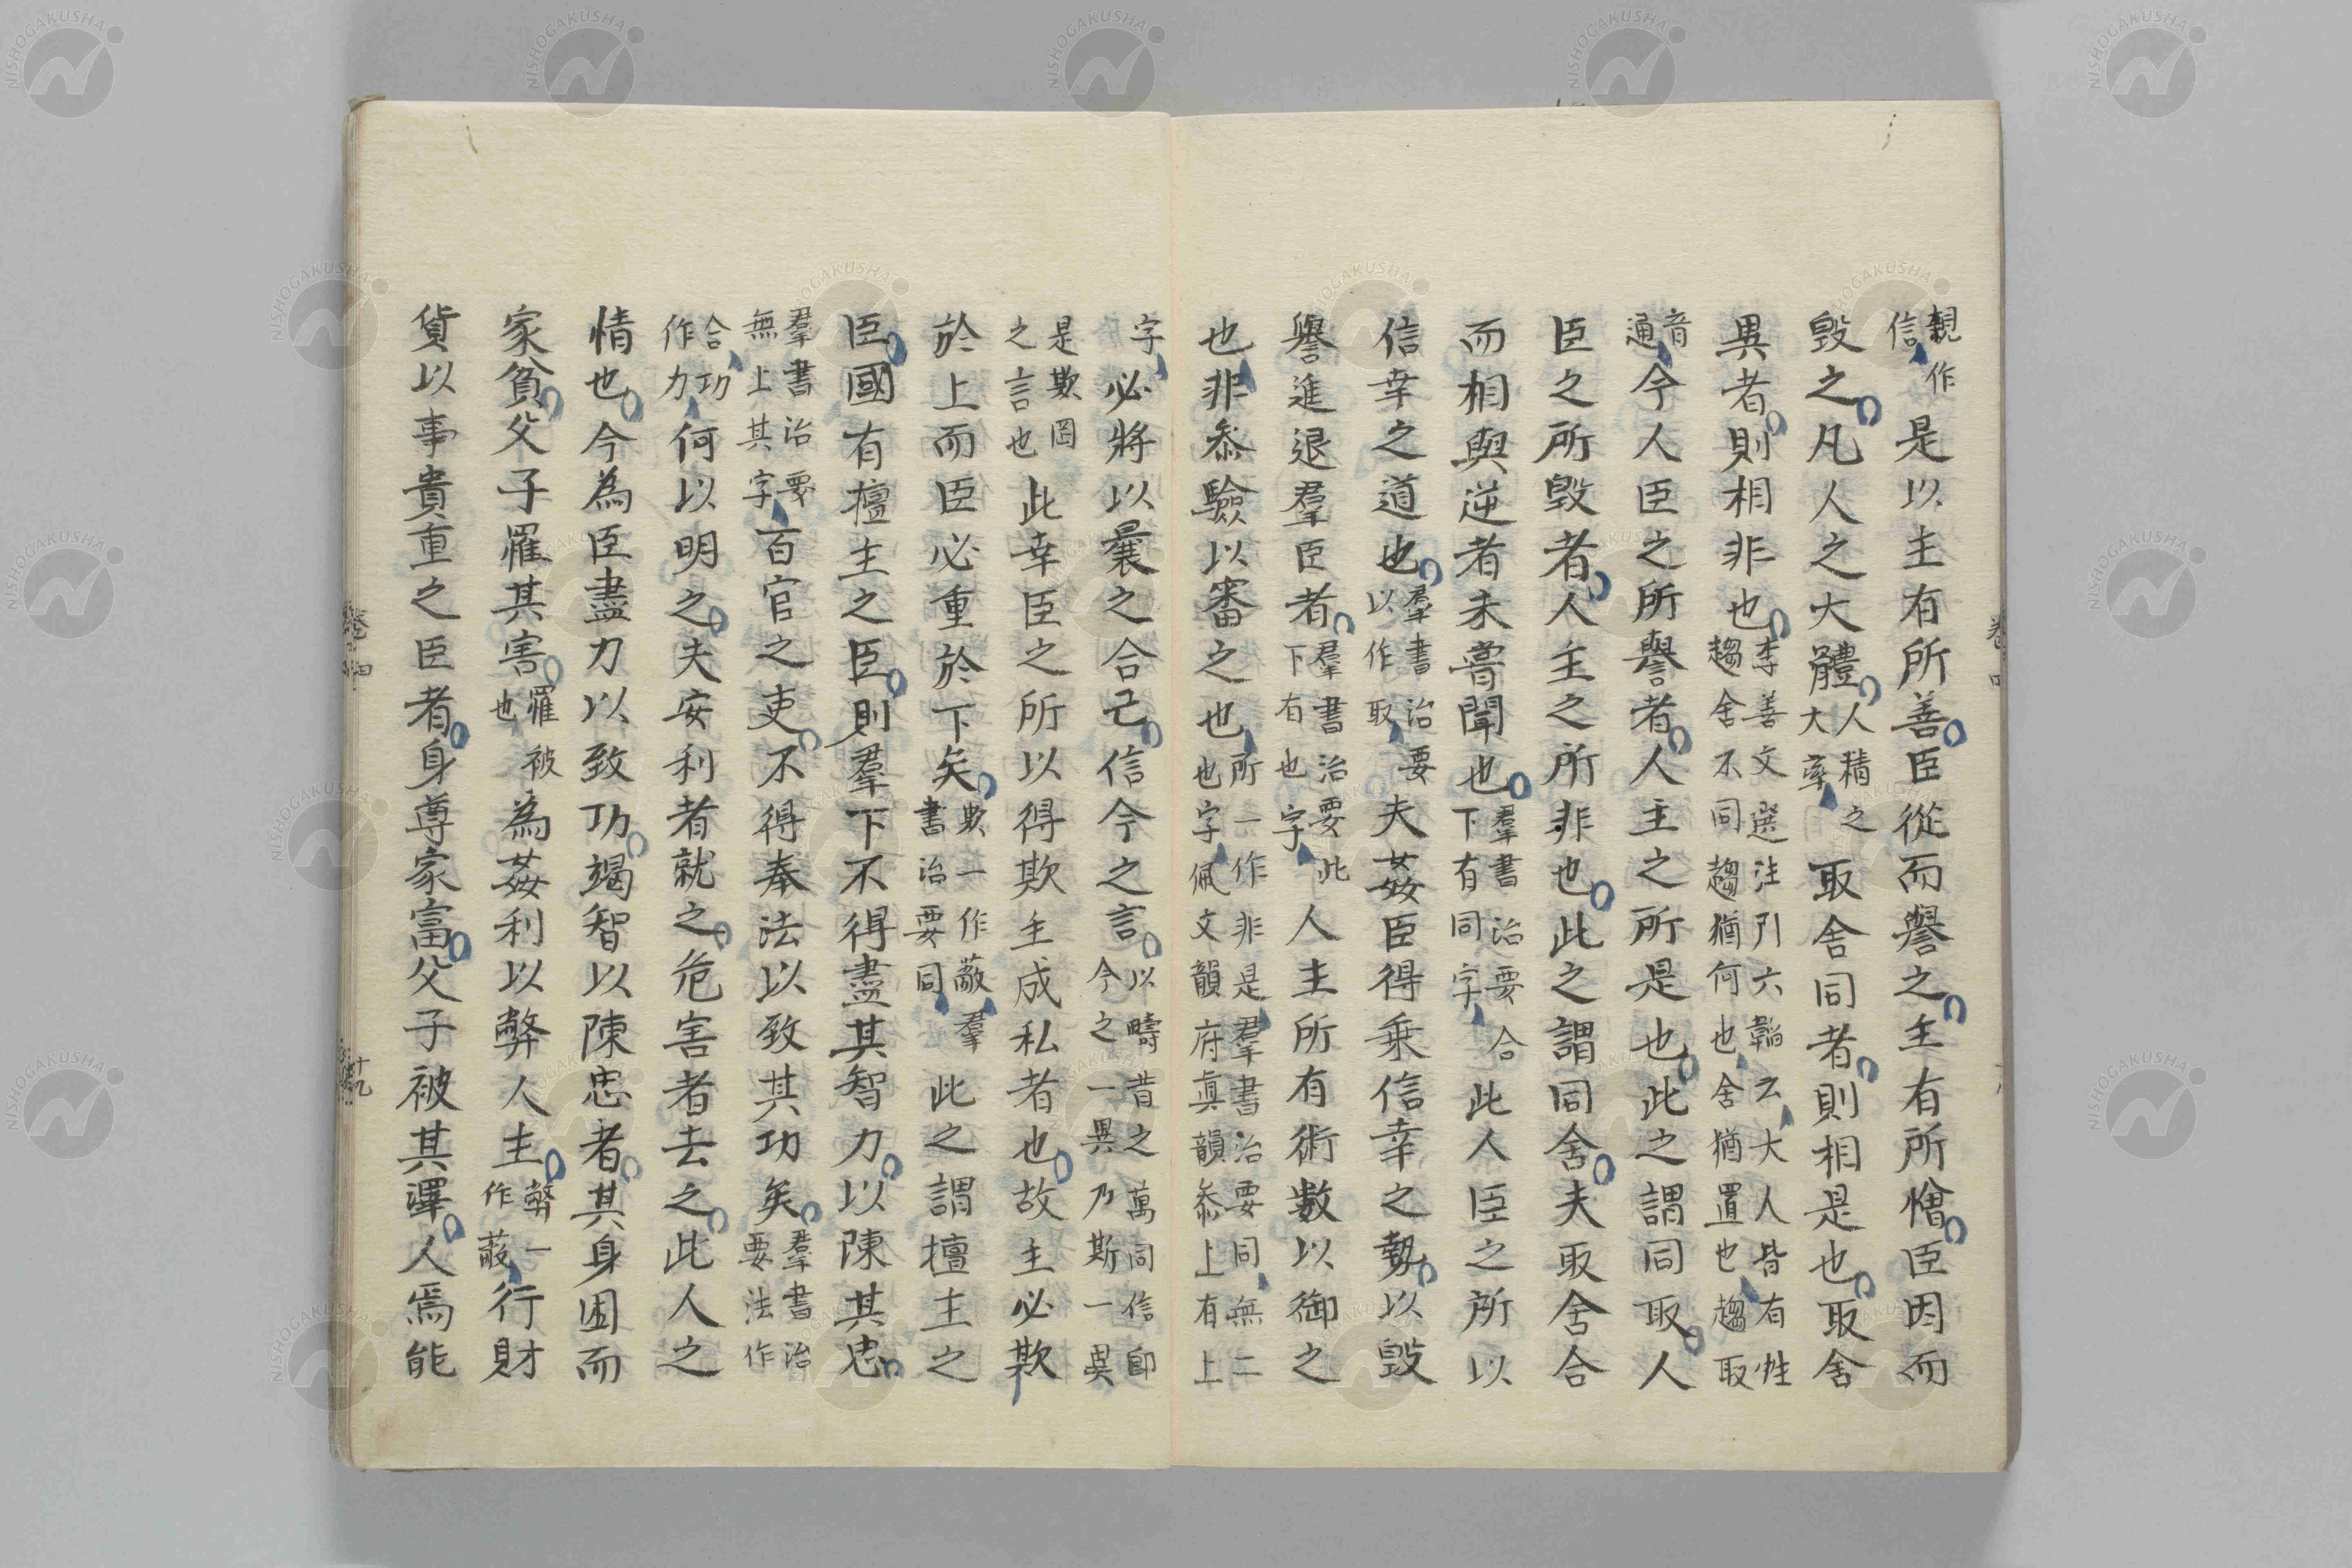 親作信是以主有所善臣從而譽之主有所憎臣因而
毀之凡人之大體人積之大率取舍同者則相是也取舍
異者則相非也李善文選注引六韜云大人皆有性趨舍不同趨猶何也舍猶置也趨取
音通今人臣之所譽者人主之所是也此之謂同取人
臣之所毀者人主之所非也此之謂同舍夫取舍合
而相與逆者未嘗聞也羣書治要合下有同字此人臣之所以
信幸之道也羣書治要以作取夫姦臣得乘信幸之勢以毀
譽進退羣臣者羣書治要此下有也字人主所有術數以御之
也非叅驗以審之也所一作非是羣書治要同無二也字佩文韻府眞韻叅上有上
字必將以曩之合己信今之言以疇昔之萬同信卽今之一異乃斯一異
是欺罔之言也此幸臣之所以得欺主成私者也故主必欺
於上而臣必重於下矣欺一作蔽羣書治要同此之謂擅主之
臣國有擅主之臣則羣下不得盡其智力以陳其忠
羣書治要無上其字百官之吏不得奉法以致其功矣羣書治要法作
合功作力何以明之夫安利者就之危害者去之此人之
情也今為臣盡力以致功竭智以陳忠者其身困而
家貧父子罹其害罹被也為姦利以弊人主弊一作蔽行財
貨以事貴重之臣者身尊家富父子被其澤人焉能
卷四
十九
NISHOGAKUSHA